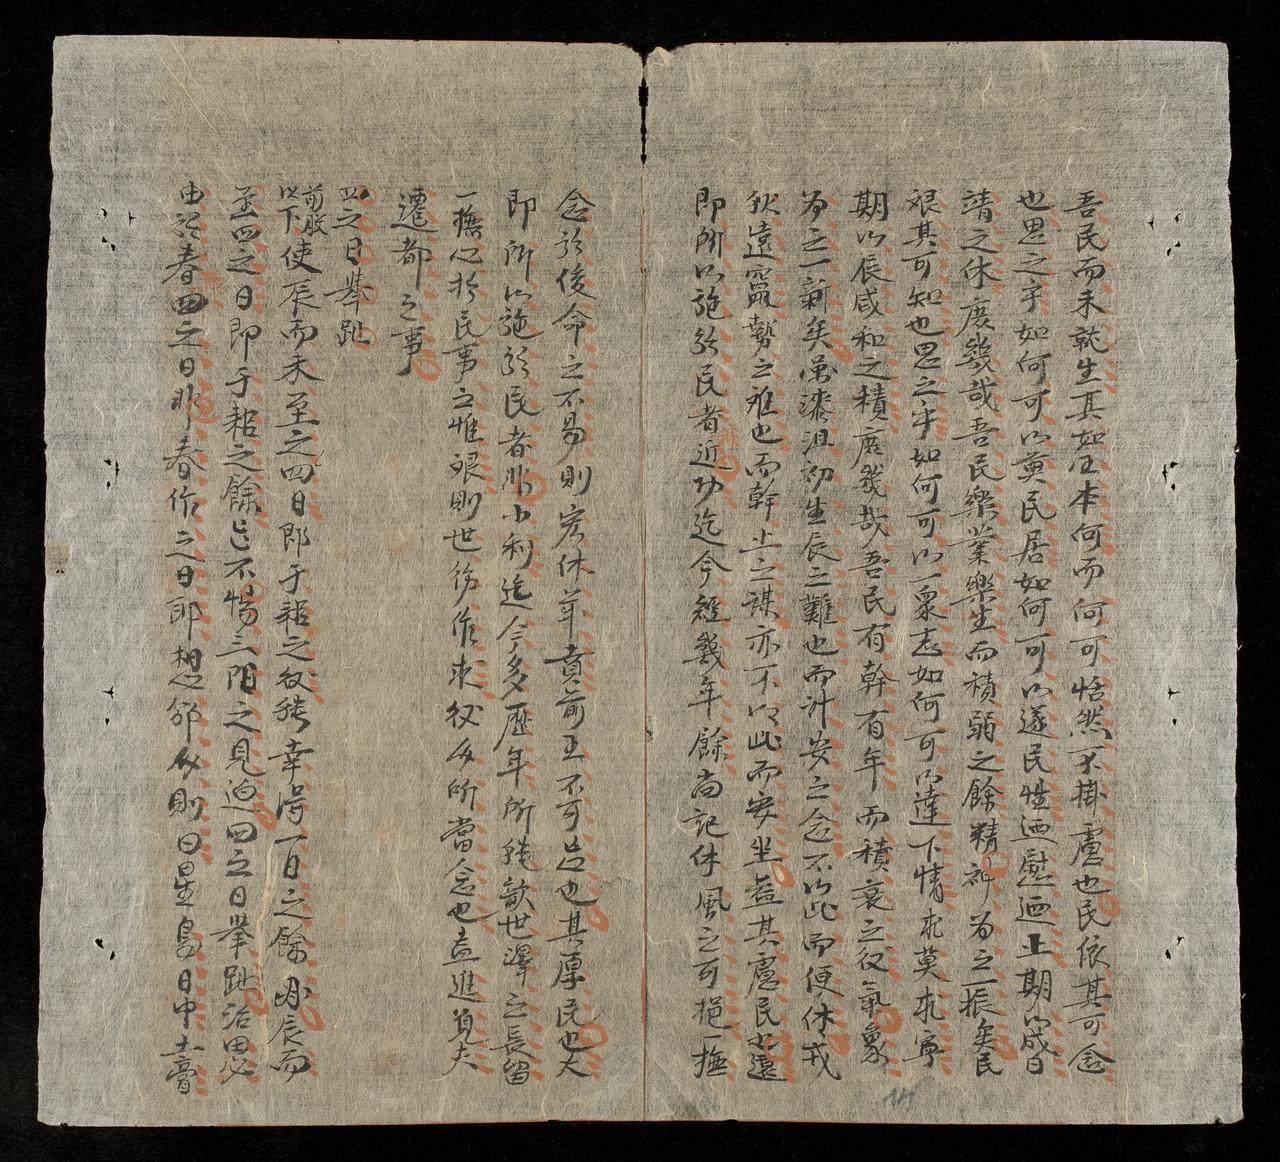 吾民而未就生其如正本何而何可恬然不掛慮也民依其可念
也思之乎如何可以奠民居如何可以遂民性迺慰迺止期以成日
靖之休庶幾哉吾民樂業樂生而積弱之餘精神為之一振矣民
艱其可知也思之乎如何可以一衆志如何可以達下情乱莫乱寧
期以辰咸和之積庶幾哉吾民有幹有年而積衰之後氣象
為之一新矣漆沮初生辰之難也而計安之念不以此而便休戎
狄遠竄勢之难也而幹止之謀亦不以此而安坐益其慮民也遠
即所以施於民者近功迄今經幾年餘尚記休風之可挹一撫
念於後命之不易則宏休茂賁前王不可忘也其厚民也大
即所以施於民者非小利迄今多歷年所猶歆世澤之長留
一撫心於民事之惟艱則世修作求後人所當念也盍進負大
遷都之事
四之日舉趾
前股以下使辰而未至之四日即于耜之後猶幸得一日之餘閒辰而
至四之日即于耜之餘已不惕三陽之見迫四之日舉趾治田必
由於春四之日非春作之日耶想邠人則曰星鳥日中土膏